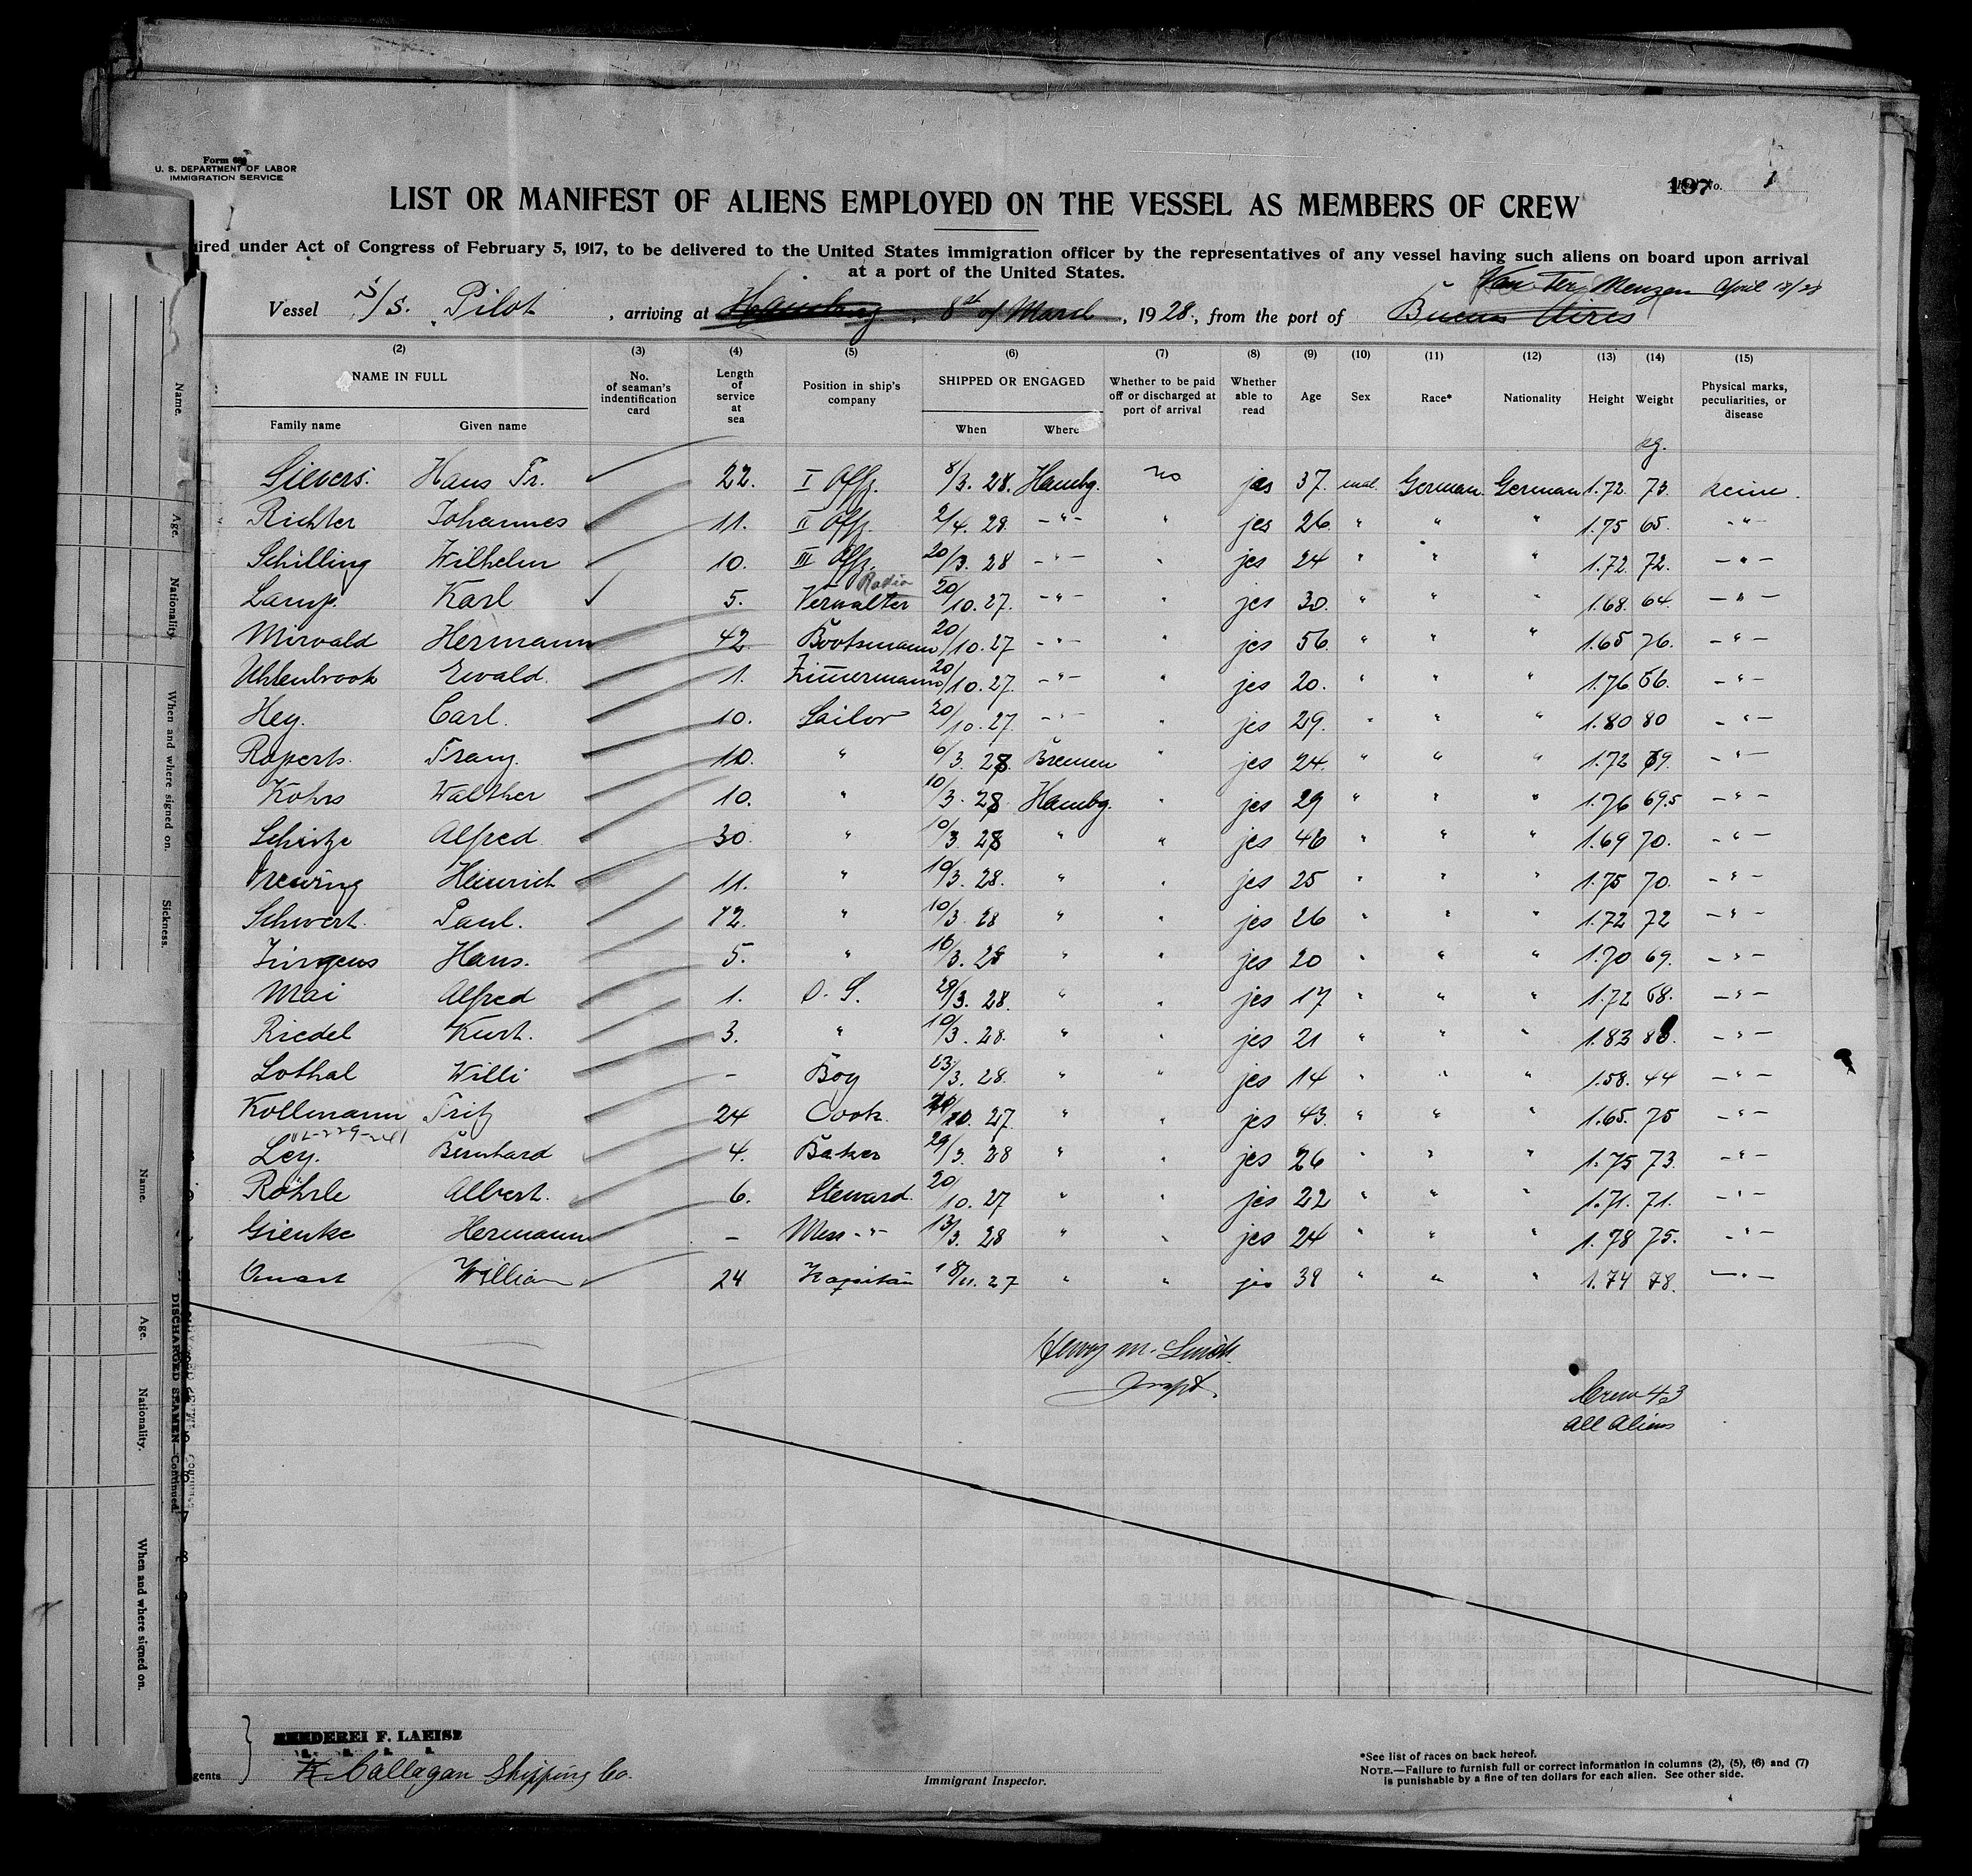 Form 680
U. S. DEPARTMENT OF LABOR
IMMIGRATION SERVICE
197 No. 1
LIST OR MANIFEST OF ALIENS EMPLOYED ON THE VESSEL AS MEMBERS OF CREW
ired under Act of Congress of February 5, 1917, to be delivered to the United States immigration officer by the representatives of any vessel having such aliens on board upon arrival
at a port of the United States.
April 18/28
Vessel S/S. Pilot, arriving at Hamburg, 8th of March, 1928., from the port of Buenos Aires
(2) (3) (4) (5) (6) (7) (8) (9) (10) (11) (12) (13) (14) (15)
NAME IN FULL
Family name Given name
No. of seaman's indentification card
Length of service at sea
Position in ship's company
SHIPPED OR ENGAGED
When Where
Whether to be paid off or discharged at port of arrival
Whether able to read
Age
Sex
Race*
Nationality
Height
Weight
Physical marks, peculiarities, or disease
kg.
Sievers. Hans Fr. 22. I Offz. 8/3. 28. Hambg. no jes 37. mal. German German 1.72. 73. keine.
Richter Johannes 11. II Offz. 2/4. 28. -"- " jes 26 " " " 1.75 65. -"-
Schilling Wilhelm 10. III Offz. 20/3. 28 -"- " jes 24 " " " 1.72. 72. -"-
Radio
Lamp. Karl 5. Verwalter 20/10. 27. -"- " jes 30. " " " 1.68. 64. -"-
Mirvald Hermann 42 Bootsmann 20/10. 27 -"- " jes 56. " " " 1.65 76. -"-
Uhlenbrook Ewald. 1. Zimmermann 20/10. 27. -"- " jes 20. " " " 1.76 66. -"-
Hey. Carl. 10. Sailor 20/10. 27. -"- " jes 29. " " " 1.80 80 -"-
Roperts. Franz. 10. " 6/3. 28. Bremen " jes 24. " " " 1.72 69. -"-
Kohrs Walther 10. " 10/3. 28 Hambg. " jes 29 " " " 1.76 69.5 -"-
Alfred 30. " 10/3. 28 " " jes 46 " " " 1.69 70. -"-
Heinrich 11. " 10/3. 28. " " jes 25 " " " 1.75 70. -"-
Schwert. Paul. 12. " 10/3. 28 " " jes 26 " " " 1.72 72 -"-
Jürgens Hans. 5. " 16/3. 28 " " jes 20 " " " 1.70 69. -"-
Mai Alfred 1. O. S. 29/3. 28. " " jes 17 " " " 1.72 68. -"-
Riedel Kurt. 3. " 10/3. 28. " " jes 21 " " " 1.83 -"-
Lothal Willi - Boy 23/3. 28. " " jes 14 " " " 1.58. 44 -"-
Kollmann Fritz 24 Cook. 20/10. 27. " " jes 43. " " " 1.65. 75 -"-
Ley. Bernhard 4. Baker 29/3. 28 " " jes 26 " " " 1.75 73. -"-
Röhrle Albert. 6. Steward. 20/10. 27 " " jes 22 " " " 1.71. 71. -"-
Gienke Hermann - Mess-"- 13/3. 28 " " jes 24 " " " 1.78 75. -"-
William 24 Kapitän 18/11. 27 " " jes 39 " " " 1.74 78. -"-
Henry M. Smith
Inspt.
Crew 43
all aliens
REEDEREI F. LAEISZ
Callagan Shipping Co.
gents
Immigrant Inspector.
*See list of races on back hereof.
NOTE.—Failure to furnish full or correct information in columns (2), (5), (6) and (7)
is punishable by a fine of ten dollars for each alien. See other side.
Name.
Age.
Nationality
When and where signed on.
Sickness.
Name.
Age.
Nationality.
When and where signed on.
DISCHARGED SEAMEN—Continued.